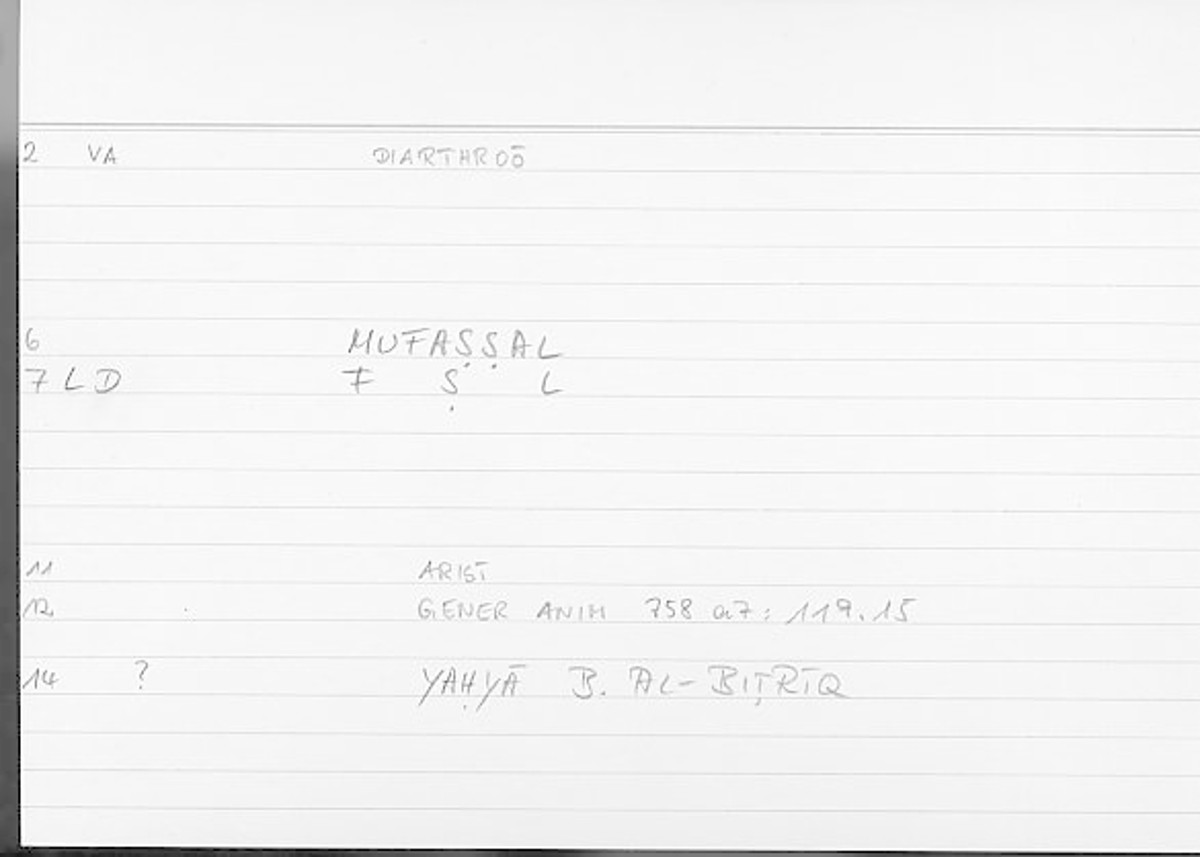 2 VA DIARTHROŌ
6 MUFAṢṢAL
7 LD F Ṣ L
11 ARIST
12 GENER ANIM 758 a7: 119.15
14 ? YAḤYĀ B. AL-BIṬRĪQ